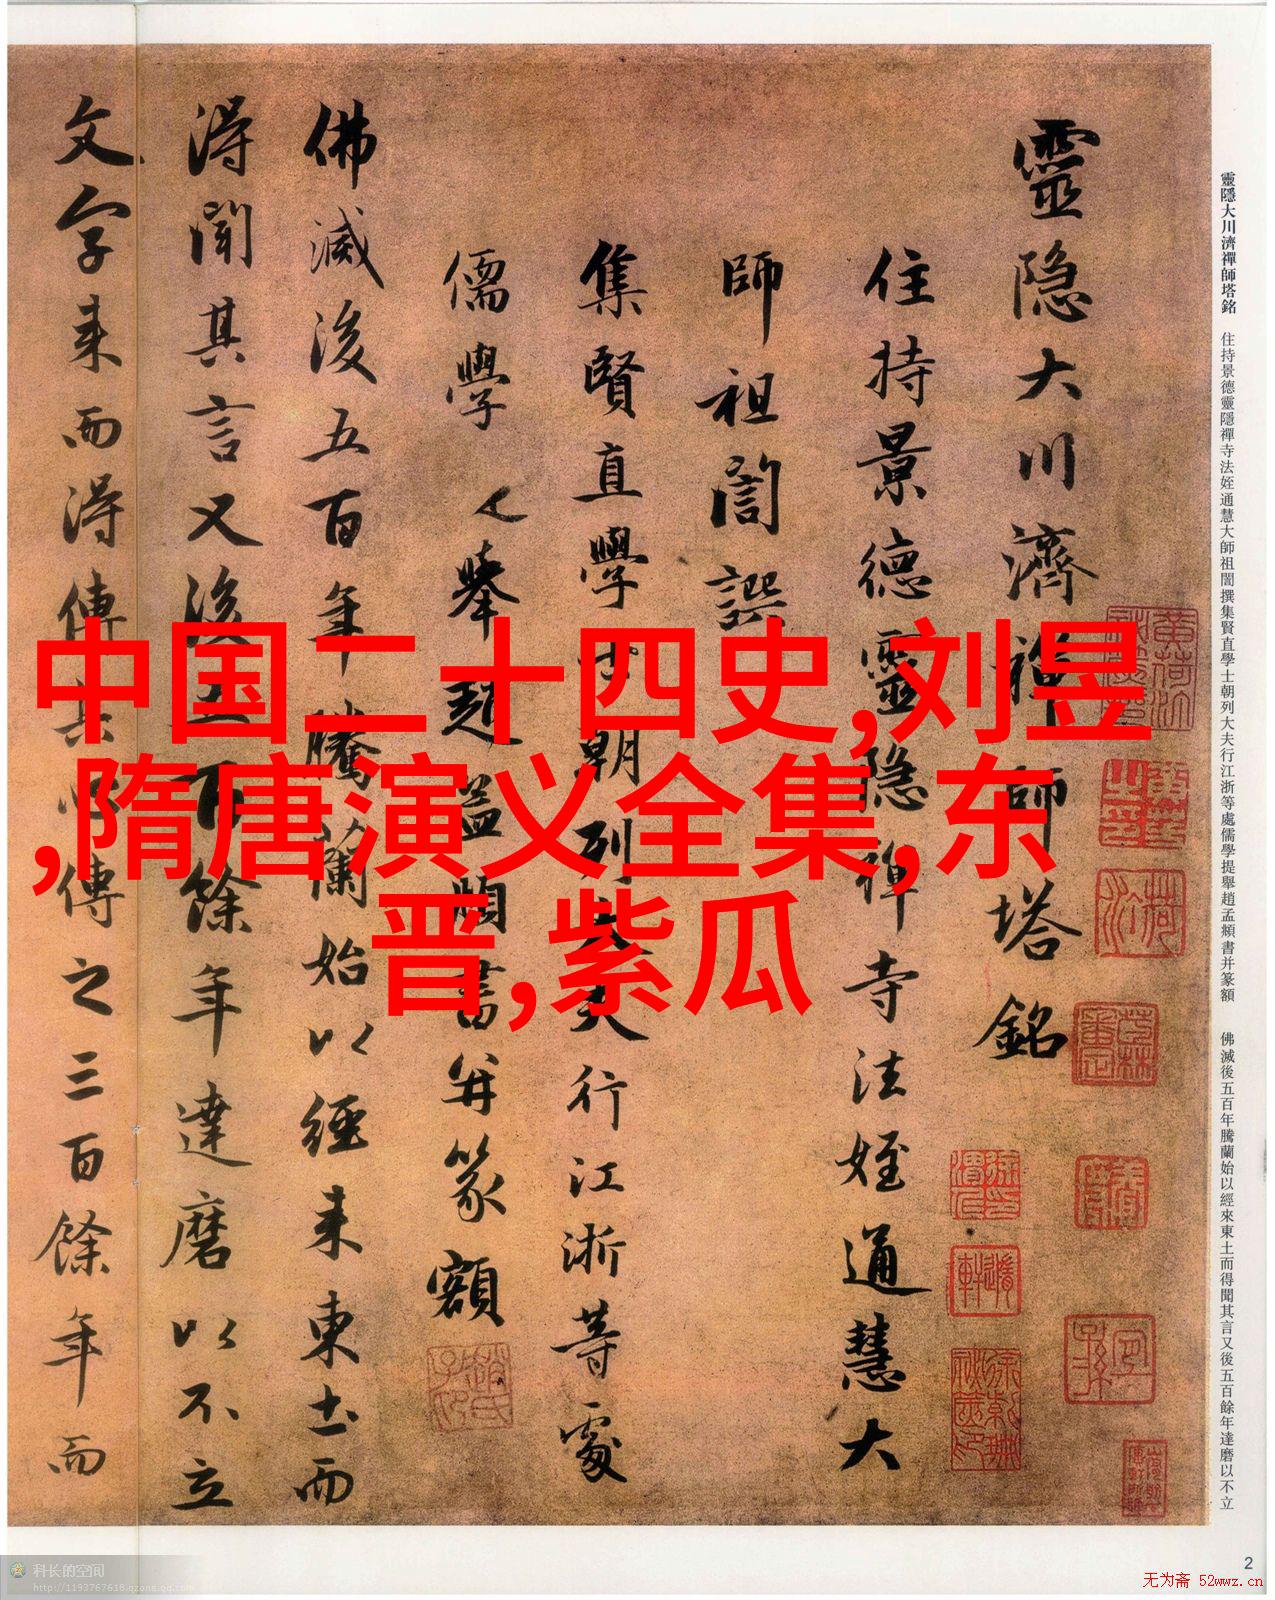 中国二十四史,刘昱
,隋唐演义全集,东
晋,紫瓜
靈隱大川濟禪師塔銘 住持景德靈隱禪寺法姪通慧大師祖誾撰集賢直學士朝列大夫行江浙等處儒學提舉趙孟頫書并篆額 佛滅後五百年騰蘭始以經來東土而得聞其言又後五百餘年達磨以不立
靈隐大川濟禅師塔銘
住持景德靈隐禅寺法姪通慧大
師祖誾譔
集賢直學士朝列大夫行江浙等處
儒學提舉趙孟頫書并篆額
佛滅後五百年騰蘭始以經来東土而
得聞其言又後五百餘年達磨以不立
文字来而得傳其心傳之三百餘年而
2
科长的空间
http://1193767618.qzone.qq.com
无为斋 52wwz.cn